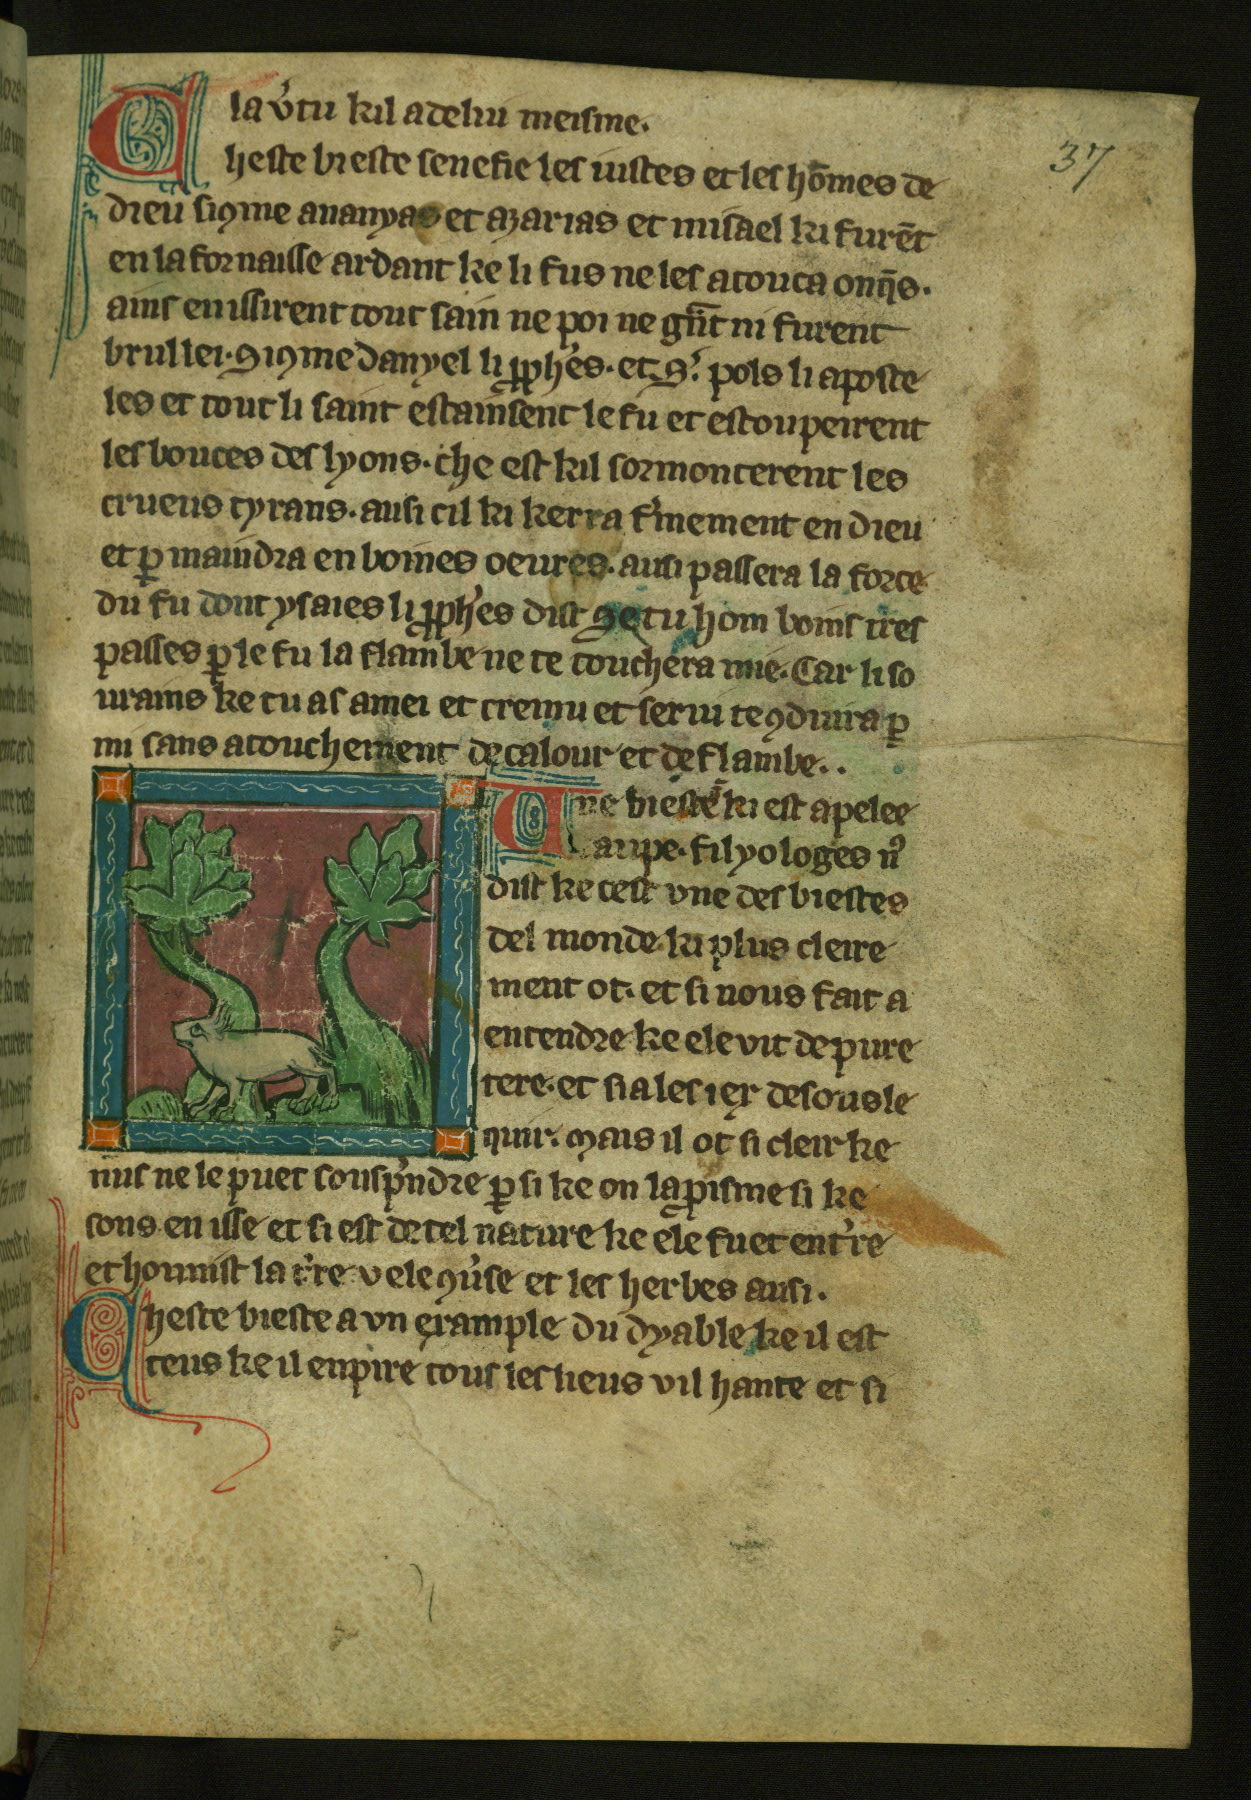 la v̾tu kil a de lui meisme.
37
Cheste bieste senefie les iustes et les hōmes de
dieu siꝯme ananyas et azarias et misael ki furēt
en la fornaisse ardant ke li fus ne les atouca onq̄s.
ains en issirent tout sain ne poi ne gn̄t ni furent
brullei. Siꝯme danyel li ꝓph̾es. et S. pols li aposte
les et tout li saint estainsent le fu et estoupeirent
les bouces des lyons. che est kil sormonterent les
crueus tyrans. ausi cil ki kerra f̾mement en dieu
et ꝑmaindra en boines oeures. ausi passera la force
du fu dont ysaies li ꝓph̾es dist Se tu hom boins tres
passes ꝑ le fu la flambe ne te touchera mie. Car li so
urains ke tu as amei et cremu et serui te ꝯduira ꝑ
mi sans atouchement de calour et de flambe..
Une bieste ki est apelee
taupe. filyologes n᷒
dist ke cest vne des biestes
del monde ki plus cleire
ment ot. et si nous fait a
entendre ke ele vit de pure
tere. et si a les iex desous le
quir. Mais il ot si cleir ke
nus ne le puet sousp̾ndre ꝑ si ke on la ꝓisme si ke
sons en isse et si est de tel nature ke ele fuet ent̾re
et hounist la t̾re v ele ꝯu̾se et les herbes ausi.
Cheste bieste a vn example du dyable ke il est
teus ke il enpire tous les lieus v il hante et si